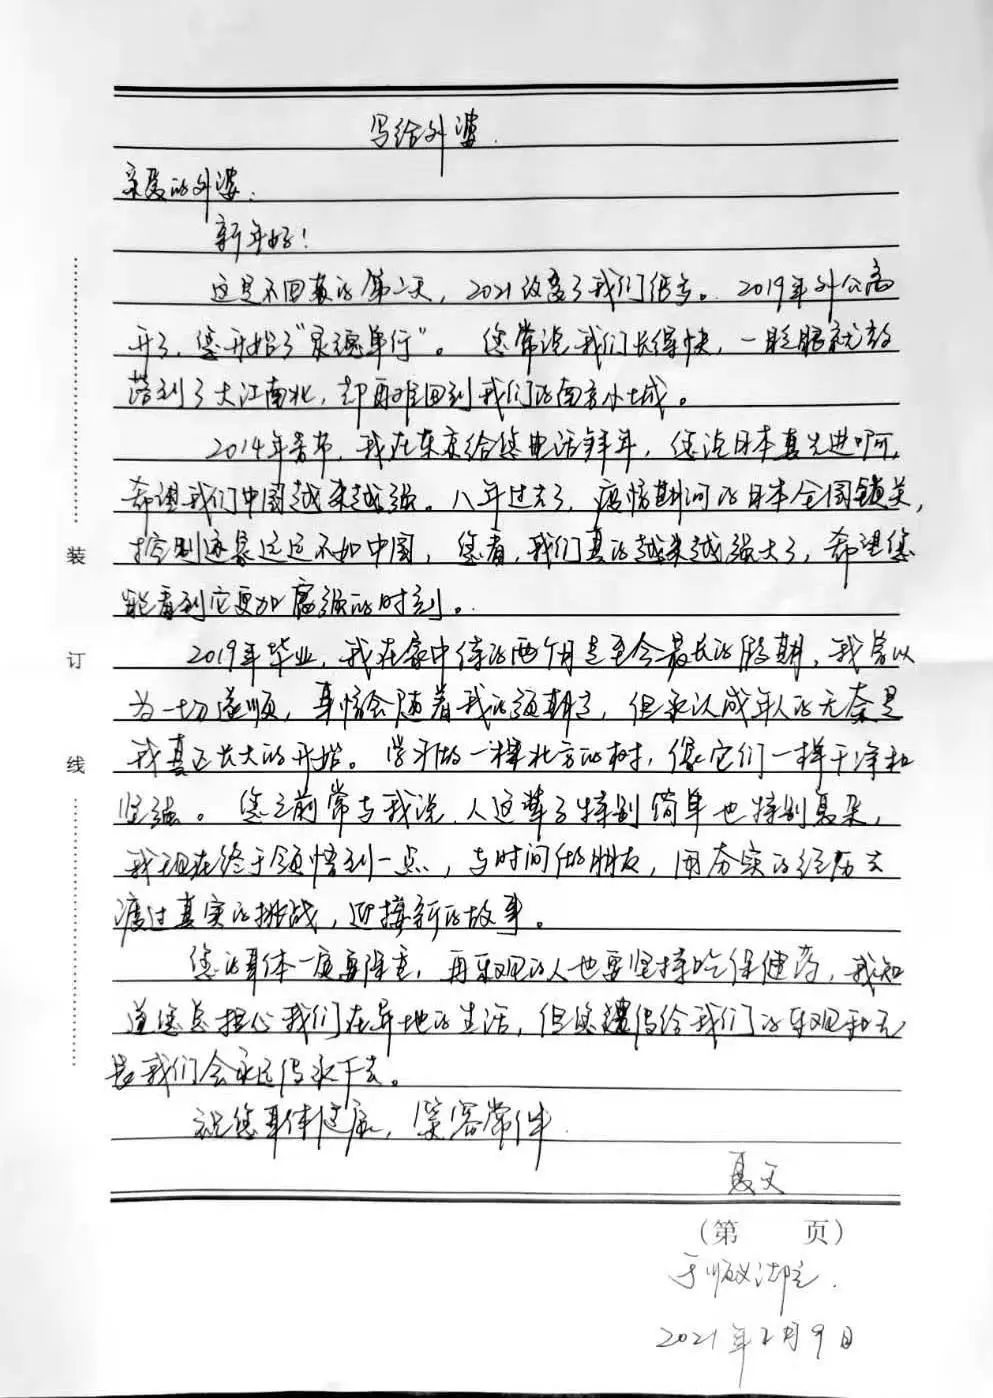 写给外婆.
亲爱的外婆:
新年好!
这是不回家的第二天,2021改变了我们很多。2019年外公离
开了,您开始了"踽踽单行"。您常说我们长得快,一眨眼就散
落到了大江南北,却再难回到我们的南方小城。
2014年春节,我在东京给您电话拜年,您说日本真先进啊,
希望我们中国越来越强。八年过去了,疫情期间的日本全国锁关,
控制还是远远不如中国,您看,我们真的越来越强大了,希望您
能看到它更加富强的时刻。
2019年毕业,我在家中待的两个月是至今最长的假期,我曾以
为一切遂顺,事情会随着我的预期走,但承认成年人的无奈是
我真正长大的开始。学习做一棵北方的树,像它们一样干净和
坚强。您之前常与我说,人这辈子特别简单也特别复杂,
我现在终于领悟到一点,与时间做朋友,用夯实的经历去
渡过真实的挑战,迎接新的故事。
您的身体一定要保重,再乐观的人也要坚持吃保健药,我知
道您总担心我们在异地的生活,但您遗传给我们的乐观和无
畏我们会永远传承下去。
祝您身体健康,笑容常伴.
夏天
(第 页)
于顺义法院.
2021年2月9日
装
订
线